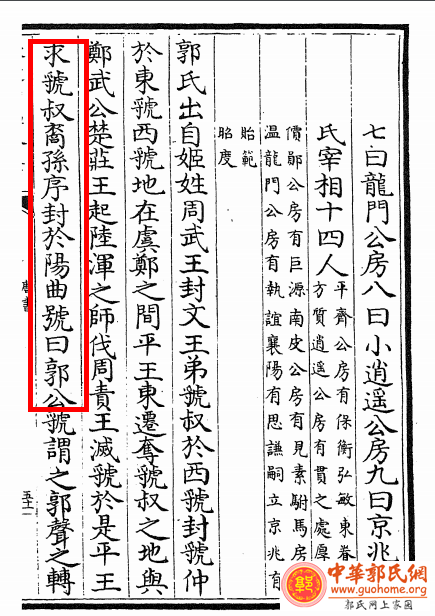 七曰龍門公房八曰小逍遥公房九曰京兆
氏宰相十四人平齊公房有保衡弘敏東眷
方質逍遥公房有貫之處厚
儐鄖公房有巨源南皮公房有見素駙馬房
温龍門公房有執誼襄陽有思謙嗣立京兆有
貽範
昭度
郭氏出自姬姓周武王封文王弟虢叔於西虢封虢仲
於東虢西虢地在虞鄭之間平王東遷奪虢叔之地與
鄭武公楚莊王起陸渾之師伐周責王滅虢於是平王
求虢叔裔孫序封於陽曲號曰郭公虢謂之郭聲之轉
中華郭氏網
www.guohome.org
郭氏网上家园